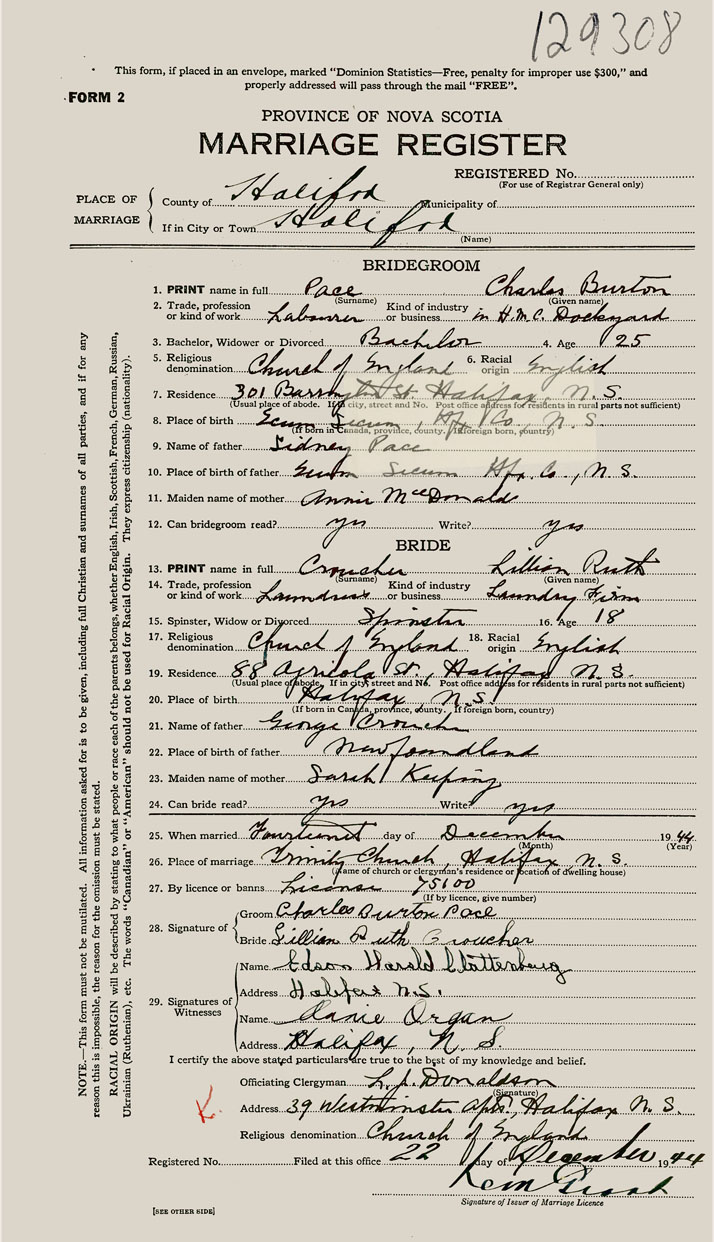 129308
This form, if placed in an envelope, marked "Dominion Statistics—Free, penalty for improper use $300," and
properly addressed will pass through the mail "FREE".
FORM 2
PROVINCE OF NOVA SCOTIA
MARRIAGE REGISTER
REGISTERED No.
(For use of Registrar General only)
PLACE OF MARRIAGE
County of Halifax Municipality of
If in City or Town Halifax
(Name)
BRIDEGROOM
1. PRINT name in full Pace Charles Burton
(Surname) (Given name)
2. Trade, profession or kind of work Labourer Kind of industry or business in H.M.C. Dockyard
3. Bachelor, Widower or Divorced Bachelor 4. Age 25
5. Religious denomination Church of England 6. Racial origin English
7. Residence 301 Barrington St. Halifax, N.S.
(Usual place of abode. If in city, street and No. Post office address for residents in rural parts not sufficient)
8. Place of birth Ecum Secum, Hfx Co., N.S.
(If born in Canada, province, county. If foreign born, country)
9. Name of father Sidney Pace
10. Place of birth of father Ecum Secum Hfx. Co., N.S.
11. Maiden name of mother Annie McDonald
12. Can bridegroom read? yes Write? yes
BRIDE
13. PRINT name in full Croucher Lillian Ruth
(Surname) (Given name)
14. Trade, profession or kind of work Laundress Kind of industry or business Laundry Firm
15. Spinster, Widow or Divorced Spinster 16. Age 18
17. Religious denomination Church of England 18. Racial origin English
19. Residence 88 Agricola St., Halifax N.S.
(Usual place of abode. If in city, street and No. Post office address for residents in rural parts not sufficient)
20. Place of birth Halifax, N.S.
(If born in Canada, province, county. If foreign born, country)
21. Name of father George Croucher
22. Place of birth of father Newfoundland
23. Maiden name of mother Sarah Keeping
24. Can bride read? yes Write? yes
25. When married Fourteenth day of December 1944
(Month) (Year)
26. Place of marriage Trinity Church, Halifax, N.S.
(Name of church or clergyman's residence or location of dwelling house)
27. By licence or banns License 75100
(If by licence, give number)
28. Signature of
Groom Charles Burton Pace
Bride Lillian Ruth Croucher
29. Signatures of Witnesses
Name Edson Harold Clattenburg
Address Halifax N.S.
Name Organ
Address Halifax, N.S.
I certify the above stated particulars are true to the best of my knowledge and belief.
Officiating Clergyman L. J. Donaldson
(Signature)
Address 39 Westminster Apts., Halifax N.S.
Religious denomination Church of England
Registered No. Filed at this office 22 day of December 1944
Signature of Issuer of Marriage Licence
[SEE OTHER SIDE]
K.
NOTE.—This form must not be mutilated. All information asked for is to be given, including full Christian and surnames of all parties, and if for any
reason this is impossible, the reason for the omission must be stated.
RACIAL ORIGIN will be described by stating to what people or race each of the parents belongs, whether English, Irish, Scottish, French, German, Russian,
Ukrainian (Ruthenian), etc. The words "Canadian" or "American" should not be used for Racial Origin. They express citizenship (nationality).